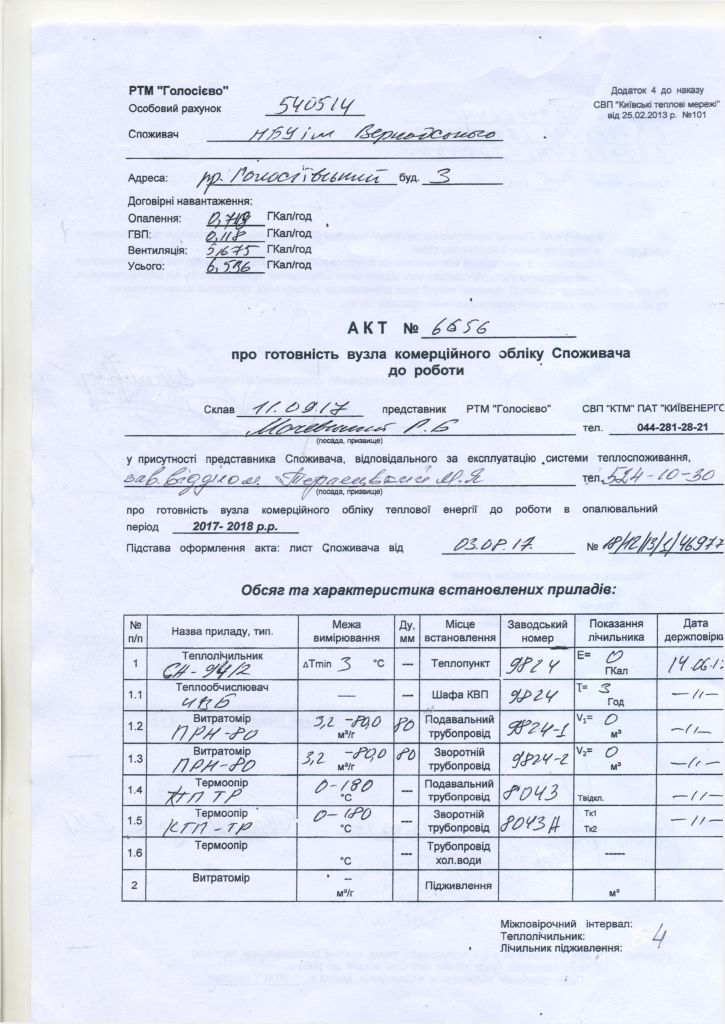 РТМ "Голосієво"
Особовий рахунок 540514
Додаток 4 до наказу
СВП "Київські теплові мережі"
від 25.02.2013 р. №101
Споживач НБУ ім Вернадського
Адреса: пр. Голосіївський буд. 3
Договірні навантаження:
Опалення: ГКал/год
ГВП: 0,118 ГКал/год
Вентиляція: 5,675 ГКал/год
Усього: 6,536 ГКал/год
АКТ № 6656
про готовність вузла комерційного обліку Споживача
до роботи
Склав 11.09.17 представник РТМ "Голосієво" СВП "КТМ" ПАТ "КИЇВЕНЕРГО
Р.Б тел. 044-281-28-21
(посада, призвище)
у присутності представника Споживача, відповідального за експлуатацію системи теплоспоживання,
зав. відділом М.Я тел. 524-10-30
(посада, призвище)
про готовність вузла комерційного обліку теплової енергії до роботи в опалювальний
період 2017- 2018 р.р.
Підстава оформлення акта: лист Споживача від 03.08.17. № 18/12/13/1/46977
Обсяг та характеристика встановлених приладів:
№ п/п Назва приладу, тип. Межа вимірювання Ду, мм Місце встановлення Заводський номер Показання лічильника Дата держповірки
1 Теплолічильник СА-94/2 ΔTmin 3 °С --- Теплопункт 9824 E= 0 ГКал 14.06.1
1.1 Теплообчислювач ИВБ — --- Шафа КВП 9824 T= 3 Год —11—
1.2 Витратомір ПРН-80 3,2 -80,0 м³/г 80 Подавальний трубопровід 9824-1 V₁= 0 м³ —11—
1.3 Витратомір ПРН-80 3,2 -80,0 м³/г 80 Зворотній трубопровід 9824-2 V₂= 0 м³ —11—
1.4 Термоопір ТР 0-180 °С --- Подавальний трубопровід 8043 Tвідкл. —11—
1.5 Термоопір КТП-ТР 0-180 °С --- Зворотній трубопровід 8043А Тк1 Тк2 —11—
1.6 Термоопір °С --- Трубопровід хол.води -----
2 Витратомір -- м³/г Підживлення м³
Міжповірочний інтервал:
Теплолічильник: 4
Лічильник підживлення: